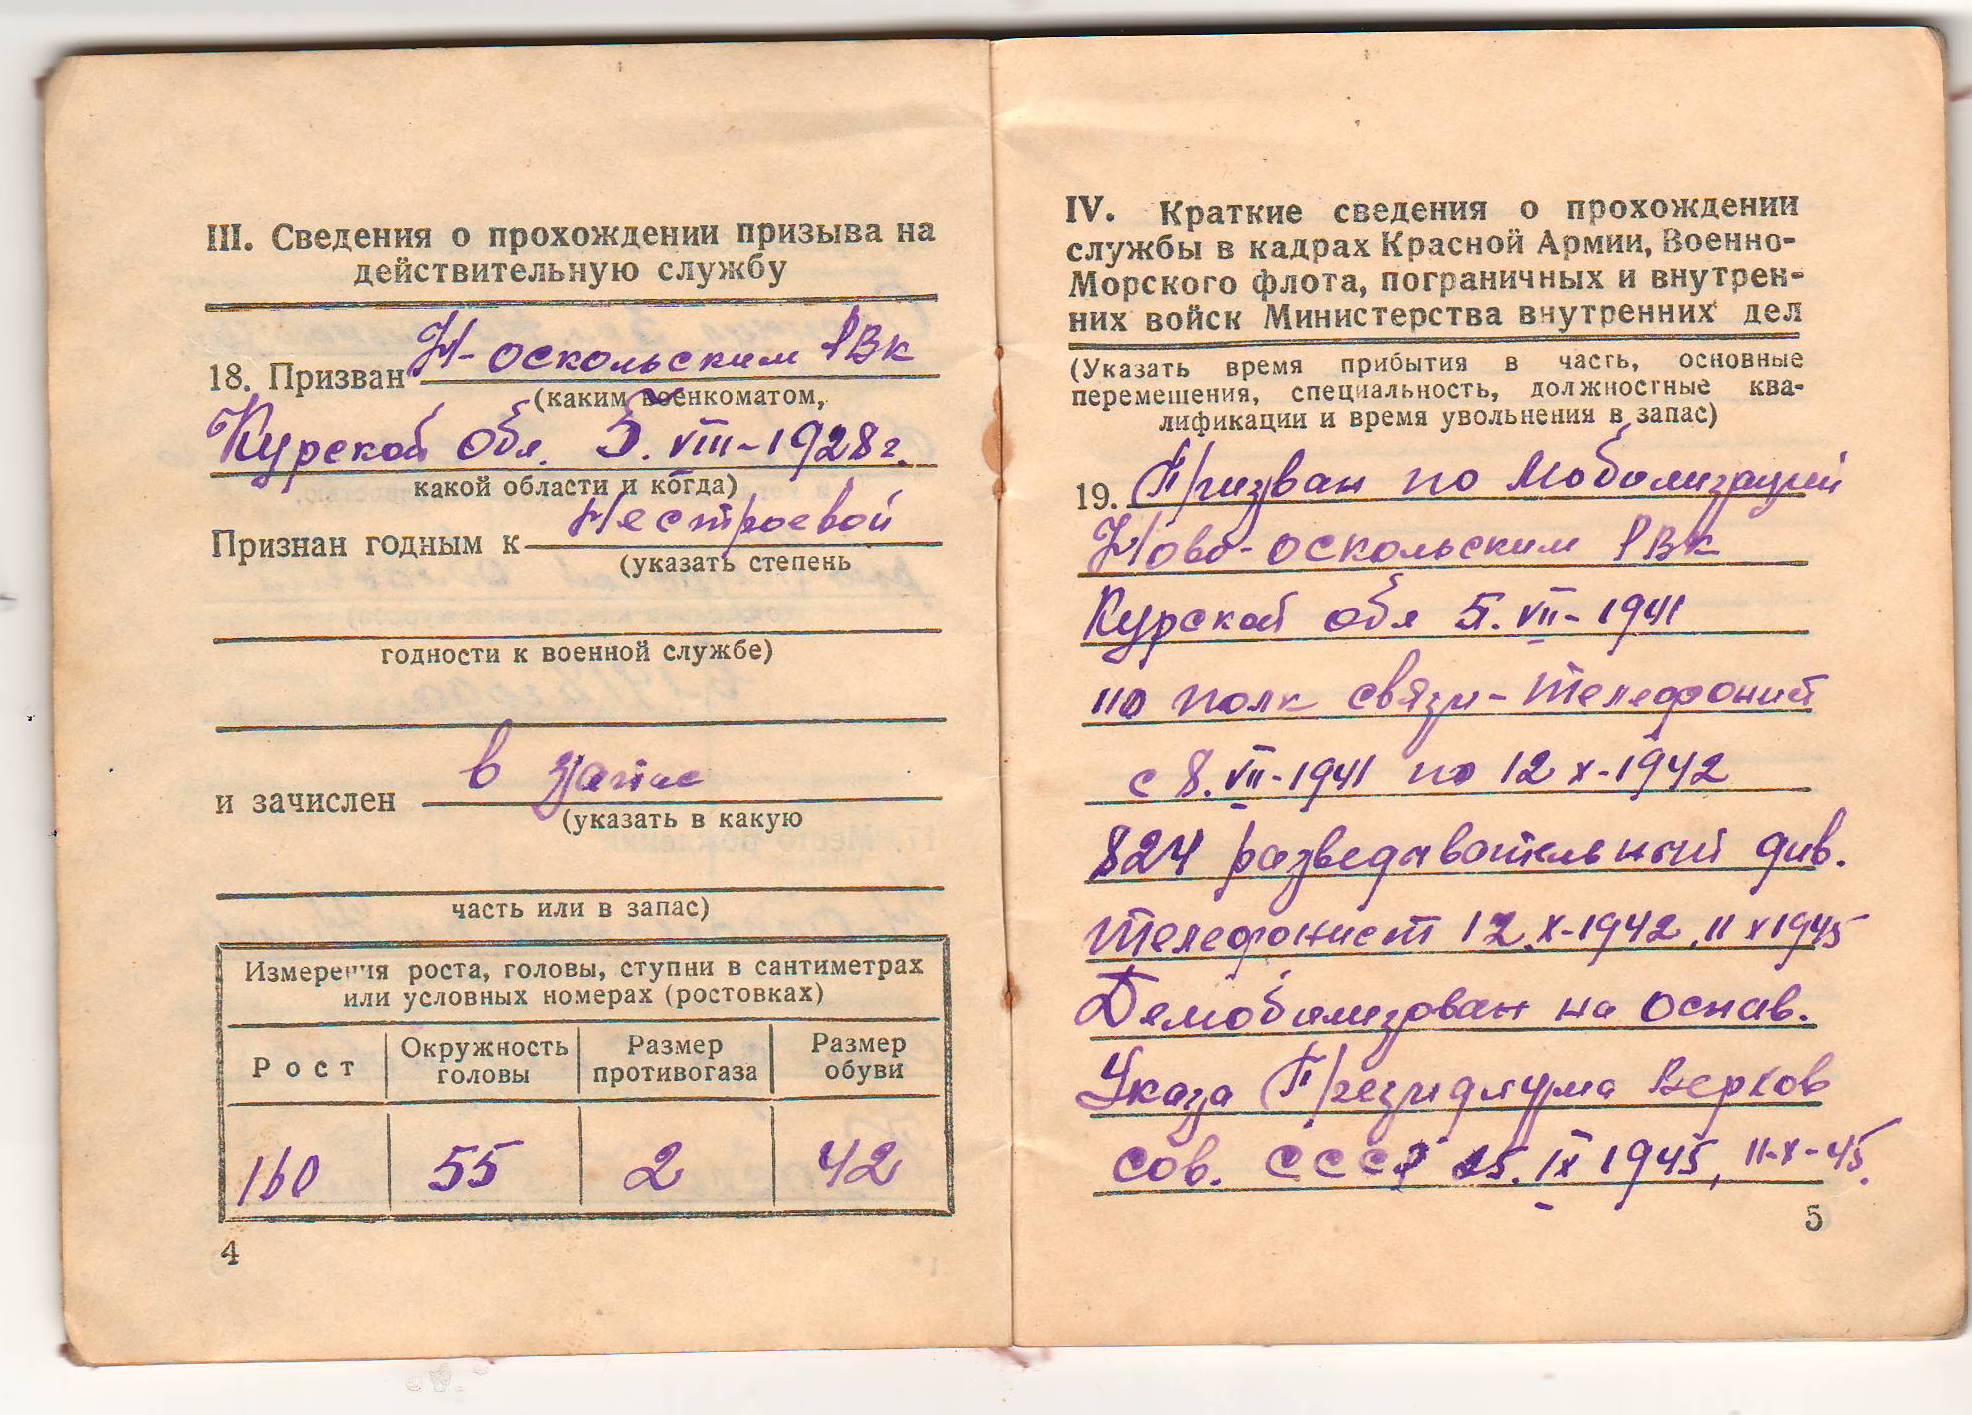 III. Сведения о прохождении призыва на
действительную службу
18. Призван Н-оскольским РВк
(каким военкоматом,
Курской обл. 5. VIII-1928г.
какой области и когда)
Признан годным к нестроевой
(указать степень
годности к военной службе)
и зачислен в запас
(указать в какую
часть или в запас)
Измерения роста, головы, ступни в сантиметрах
или условных номерах (ростовках)
Рост Окружность головы Размер противогаза Размер обуви
160 55 2 42
4
IV. Краткие сведения о прохождении
службы в кадрах Красной Армии, Военно-
Морского флота, пограничных и внутрен-
них войск Министерства внутренних дел
(Указать время прибытия в часть, основные
перемещения, специальность, должностные ква-
лификации и время увольнения в запас)
19. Призван по мобилизации
Ново-оскольским РВк
Курской обл 5. VII-1941
110 полк связи-телефонист
с 8. VII-1941 по 12 X-1942
824 разведавательный див.
телефонист 12.X-1942. 11 X 1945
Демобилизован на основ.
Указа Президиума Верхов
сов. СССР 25. IX 1945, 11-X-45.
5